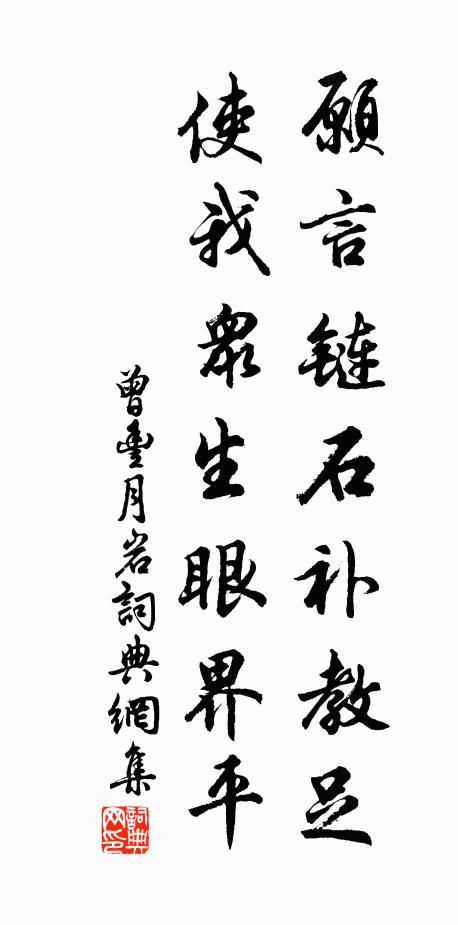 願言鏈石补教足
使我眾生眼界平
曾豐月岩詞典網集
詞典网印